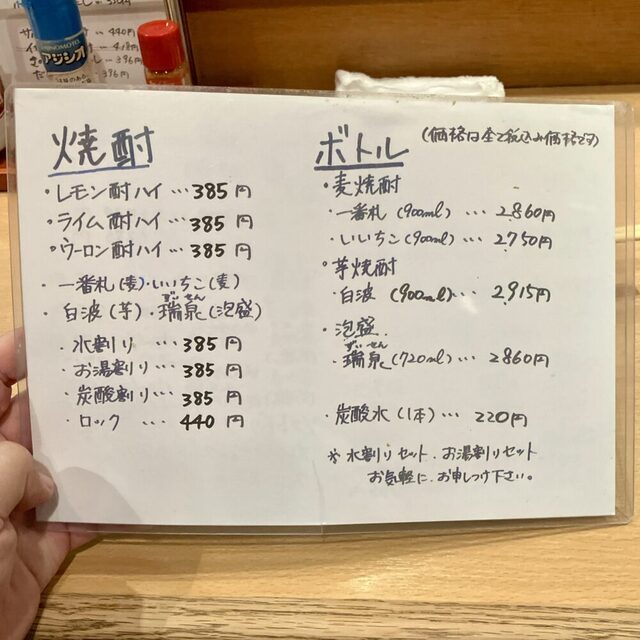 440円
418円
396円
396円
AJINOMOTO
アジシオ
焼酎
・レモン酎ハイ…385円
・ライム酎ハイ…385円
・ウーロン酎ハイ…385円
・一番札(麦)・いいちこ(麦)
ずいせん
・白波(芋)・瑞泉(泡盛)
・水割り…385円
・お湯割り…385円
・炭酸割り…385円
・ロック…440円
ボトル
(価格は全て税込み価格です)
・麦焼酎
・一番札(900ml)…2,860円
・いいちこ(900ml)…2,750円
・芋焼酎
・白波(900ml)…2,915円
・泡盛
ずいせん
・瑞泉(720ml)…2860円
・炭酸水(1本)…220円
※水割りセット.お湯割りセット
お気軽に.お申しつけ下さい。